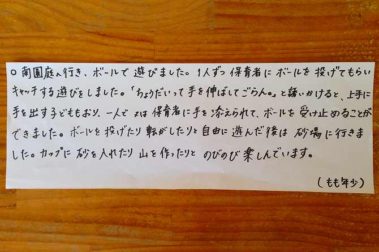 ○南園庭へ行き、ボールで遊びました。1人ずつ保育者にボールを投げてもらい
キャッチする遊びをしました。「ちょうだいって手を伸ばしてごらん。」と誘いかけると、上手に
手を出す子どももおり、一人では保育者に手を添えられて、ボールを受け止めることが
できました。ボールを投げたり転がしたりと自由に遊んだ後は砂場に行きま
した。カップに砂を入れたり山を作ったりとのびのび楽しんでいます。
(もも年少)